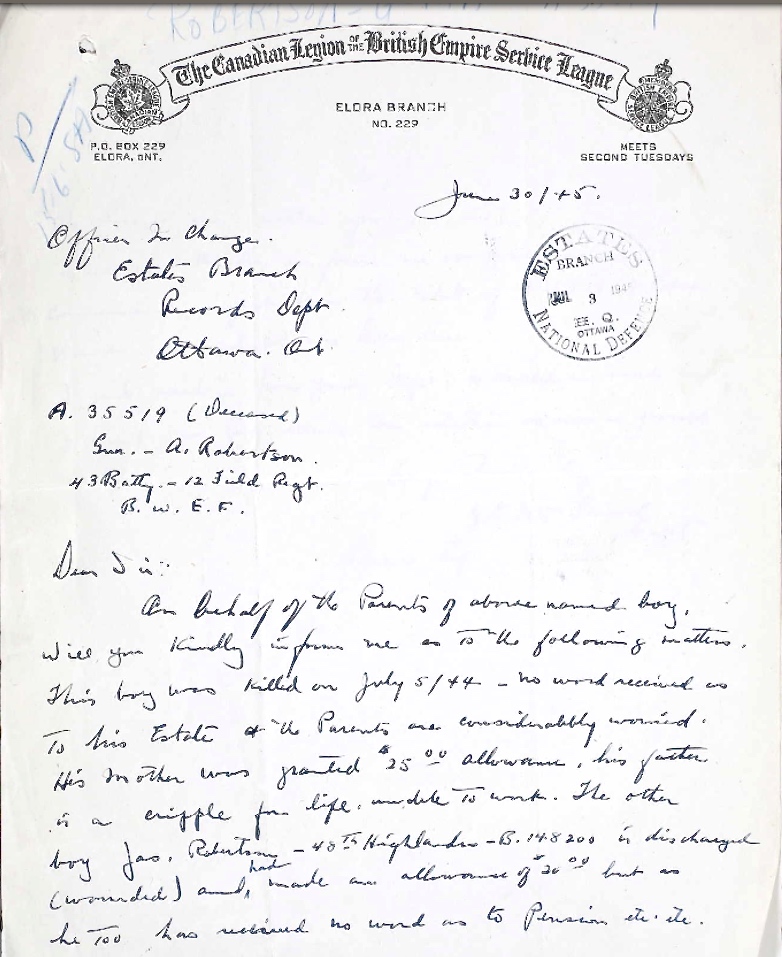 ROBERTSON - G
The Canadian Legion OF THE British Empire Service League
ELORA BRANCH
NO. 229
P.O. BOX 229
ELORA, ONT.
MEETS
SECOND TUESDAYS
June 30/45.
Officer In Charge.
Estates Branch
Records Dept.
Ottawa. Ont.
ESTATES
BRANCH
JUL 3 1945
H. Q.
OTTAWA
NATIONAL DEFENCE
A. 35519 (Deceased)
Gun. - A. Robertson.
43 Batty. - 12 Field Regt.
B. W. E. F.
Dear Sir:
On behalf of the Parents of above named boy,
will you kindly inform me as to the following matters.
This boy was killed on July 5/44 - no word received as
to his Estate & the Parents are considerabbly worried.
His mother was granted $25 00 allowance, his father
is a cripple for life, unable to work. The other
boy Jas. Robertson - 48th Highlanders - B. 148200 is discharged
(wounded) and, had made an allowance of $20 00 but as
he too has received no word as to Pension etc. etc.